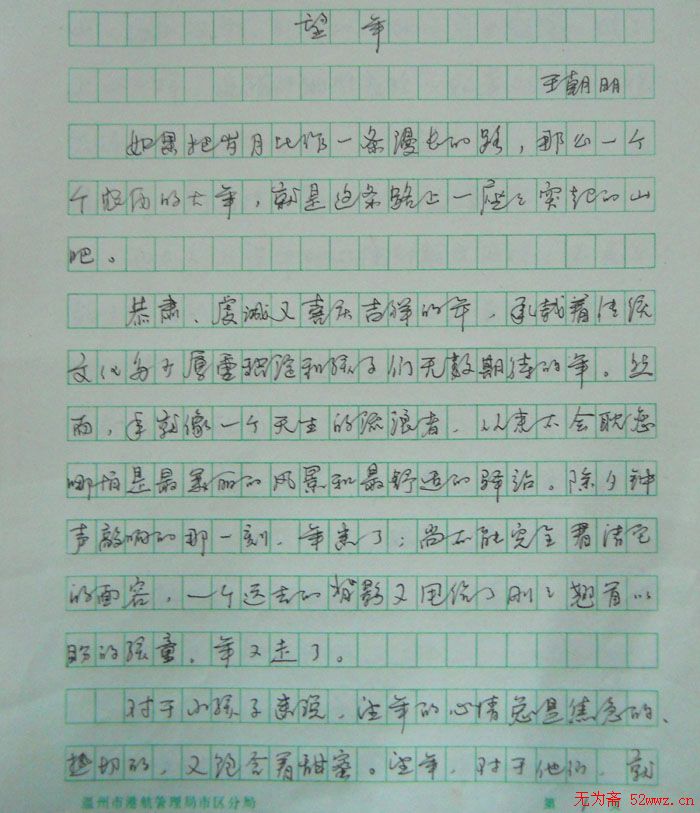 望年
王朝明
如果把岁月比作一条漫长的路，那么一个
个农历的大年，就是这条路上一座々突起的山
吧。
恭肃、虔诚又喜庆吉祥的年，承载着传统
文化多少厚重积淀和孩子们无数期待的年。然
而，年就像一个天生的流浪者，从来不会耽恋
哪怕是最美丽的风景和最舒适的驿站。除夕钟
声敲响的那一刻，年来了；尚不能完全看清它
的面容，一个远去的背影又甩给了刚々翘首以
盼的孩童。年又走了。
对于小孩子来说，望年的心情总是焦急的、
热切的，又饱含着甜蜜。望年，对于他们，就
温州市港航管理局市区分局
第 页
无为斋 52wwz.cn